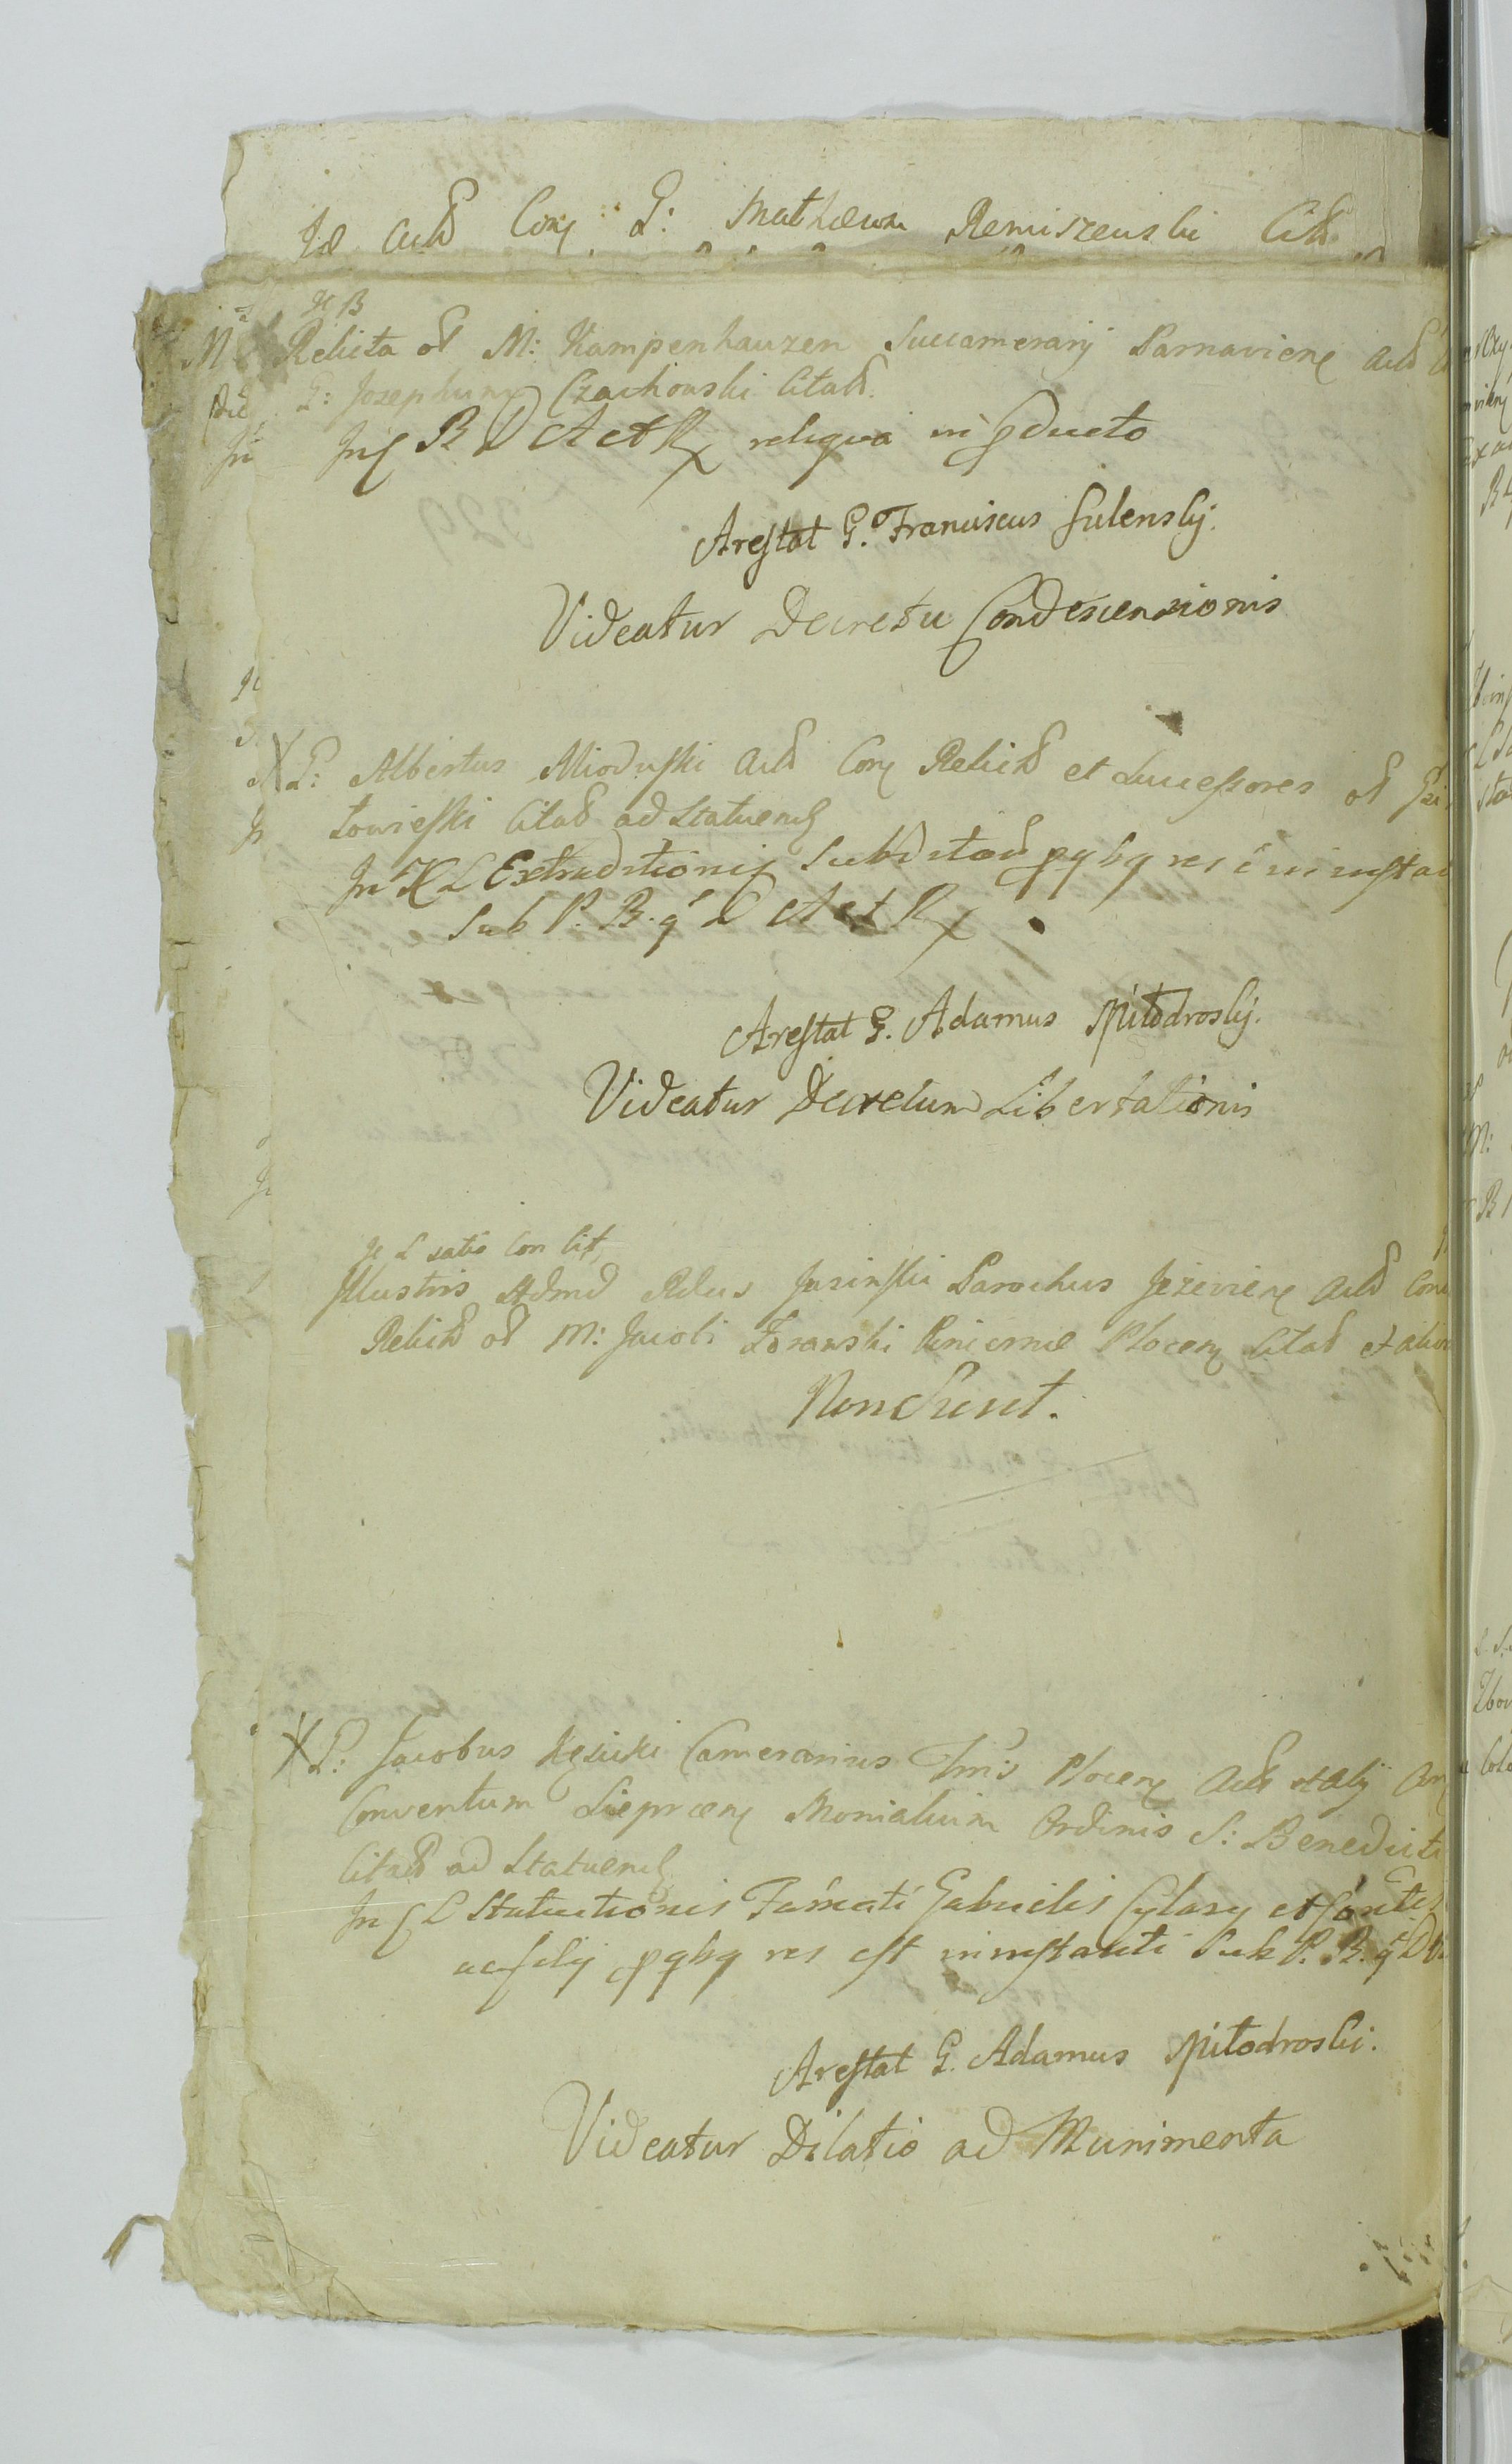 Id Actt Con G: Mathæum Remiszewski Citt
H B
Relicta ol M: Kampenhauzen Succamerarij Parnavien Actt
G: Josephum Czachowski Citatt
In B D A et R reliqua in pducto
Arestat G. Franciscus Sulenskj.
Videatur Decretu Condescensionis
G: Albertus Mioduski Actt Con Relictt et Successores ol
towieski Citatt ad Statuend
In L Extraditionis Subditor pqbq res e in instan
Sub P. B. q D A et R
Arestat G. Adamus Miłodroskj.
Videatur Decretum Libertationis
H L satio Con Cit
Illustris Admd Rdus Jasinski Parochus Jezevien Actt Con
Relictt ol M: Jacobi Zorawski Pincernæ Plocen Citatt et alior
Non Sunt.
G: Jacobus Kęsicki Camerarius Tris Plocen Actt et alij Con
Conventum Sieprcen Monialium Ordinis S: Benedicti
Citatt ad Statuend
In L Statuitionis Famati Gabrielis Cylary et Conte
ac filij pqbq res est in instanti Sub P. B. q D
Arestat G. Adamus Miłodroski.
Videatur Dilatio ad Munimenta